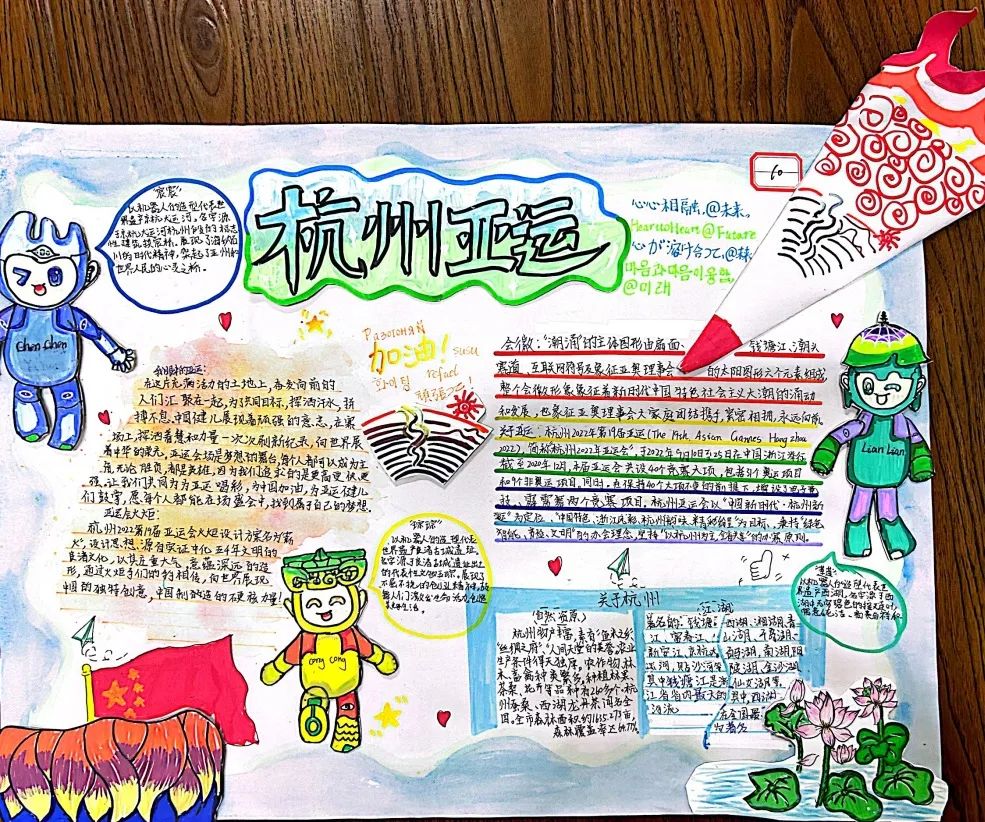 杭州亚运
"宸宸"
以机器人的造型代表世
界遗产京杭大运河,名字源
于京杭大运河杭州段的标志
性建筑拱宸桥。
川的时代精神,架起了亚洲和
世界人民的心灵之桥。
Chen Chen
心心相融,@未来。
Heart to Heart @ Future
마음과 마음이 융합,
@미래
加油!
화이팅
susu
会徽:"潮涌"的主体图形由扇面、钱塘江、潮头
赛道、互联网符号及象征亚奥理事会的太阳图形六个元素组成
整个会徽形象象征着新时代中国特色社会主义大潮的涌动
和发展,也象征亚奥理事会大家庭团结携手,紧密相拥,永远向前。
关于亚运:杭州2022年第19届亚运会(The 19th Asian Games Hangzhou
2022),简称"杭州2022年亚运会",于2022年9月10日至25日在中国浙江举行
截至2020年12月,本届亚运会共设40个竞赛大项,包括31个奥运项目
和9个非奥运项目,同时,在保持40个大项不变的前提下,增设了电子竞
技、霹雳舞两个竞赛项目。杭州亚运会以"中国新时代·杭州新
亚运"为定位、"中国特色、浙江风采、杭州韵味、精彩纷呈"为目标、秉持"绿色
智能、节俭、文明"的办会理念,坚持"以杭州为主,全省共享"的办赛原则。
在这片充满活力的土地上,奋发向前的
人们汇聚在一起,为共同目标,挥洒汗水,拼
搏不息。中国健儿展现着顽强的意志,在赛
场上,挥洒着智慧和力量一次次刷新纪录,向世界展
示中华的荣光。亚运会场是梦想的舞台,每个人都可以成为主
角,无论胜负,都是英雄,因为我们追求的是更高更快、更
强。让我们共同为亚运喝彩,为中国加油,为亚运健儿
们鼓掌,愿每个人都能在场盛会中,找到属于自己的梦想。
亚运会火炬:
杭州2022第19届亚运会火炬设计方案名为"薪
火"。设计思想,源自实证中华五千年文明的
良渚文化,以其庄重大气、意蕴深远的造
形,通过火炬手们的的相传,向世界展现
中国的独特创意,中国制造的不硬核力量!
"琮琮"
以机器人的造型代表世
界遗产良渚古城遗址,
名字源于良渚古城遗址出土
的代表性文物玉琮。展现了
cong cong
Lian Lian
"莲莲"
以机器人的造型代表世
界遗产西湖,名字源于西
关于杭州
(自然资源)
杭州物产丰富,素有"鱼米之乡"
"丝绸之府"、"人间天堂"的美誉,农业
生产条件得天独厚,农作物、林
木、畜禽种类繁多,种植林果、
茶桑、花卉等品种有260多个,杭
州蚕桑、西湖龙井茶闻名全
国。全市森林面积约1635.27万亩
森林覆盖率达64.77%
(江、湖)
著名的:"钱塘
江、富春江、
新安江、京杭大
运河、贴沙河等
其中钱塘江是浙
江省省内最大的
河流
西湖、湘湖、青
山湖、千岛湖、
白马湖、南湖、阴
陂湖、金沙湖
仙女湖等,
其中西湖
在全国最
为著名